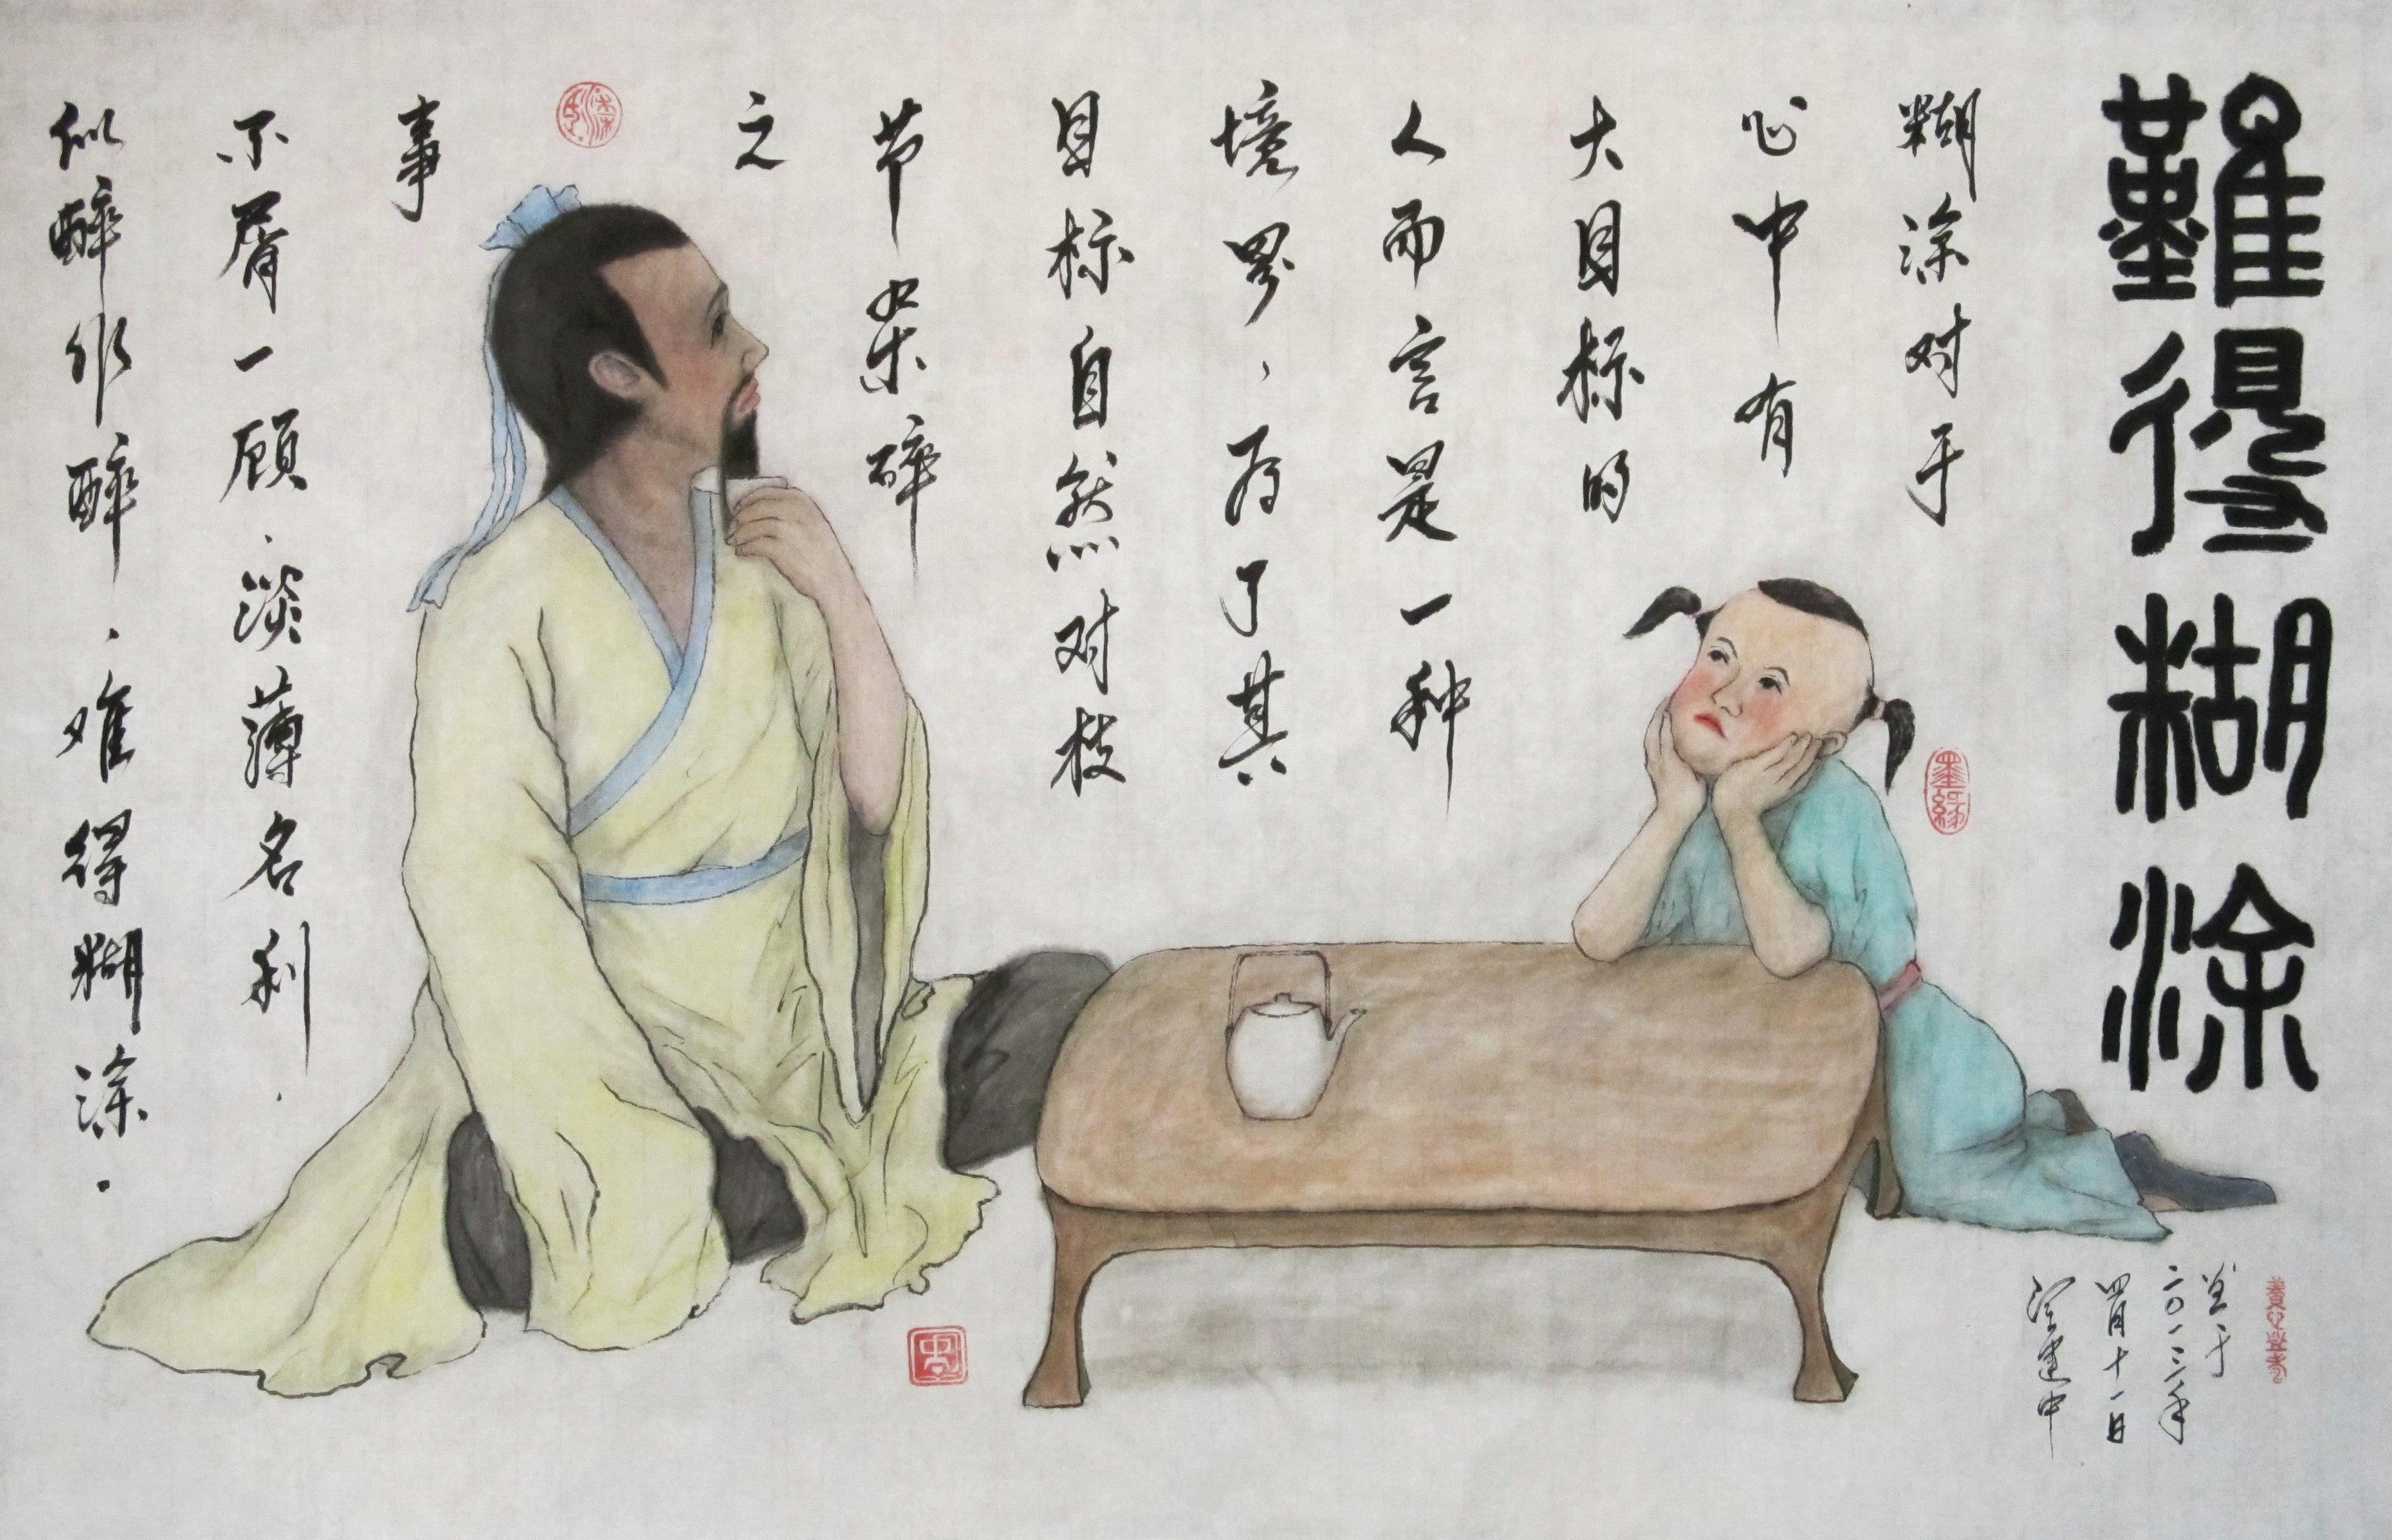 難得糊涂
糊涂对于
心中有
大目标的
人而言是一种
境界、为了其
目标自然对枝
节杂碎
之
事
不屑一顾、淡薄名利.
似醉非醉、难得糊涂.
于
二〇一三年
四月十一日
建中
墨緣